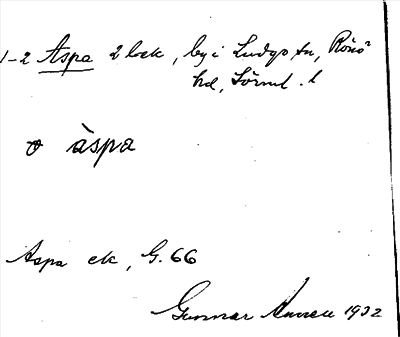 1-2 Aspa 2 bek, by i Ludgo sn, Rönö
hd, Sörml. l
o àspa
Aspa ek, G. 66
Gunnar 1932